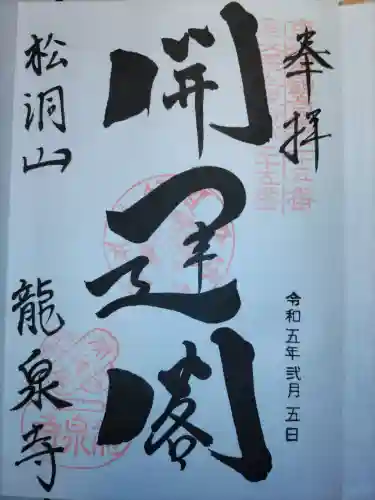 奉拝
令和五年弐月五日
開運閣
松洞山
龍泉寺